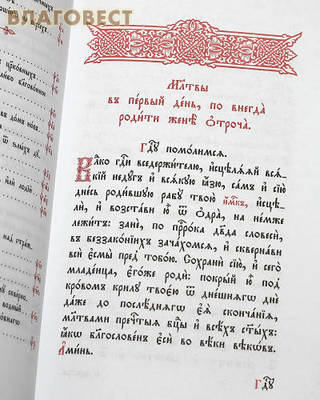 БЛАГОВЕСТ
Мл҃твы
въ пе́рвый де́нь, по внегда̀
роди́ти женѣ̀ ѻ҆троча̀.
Гдⷭ҇ꙋ помо́лимсѧ.
Влⷣко гдⷭ҇и вседержи́телю, и҆сцѣлѧ́ѧй всѧ́-
кїй недꙋ́гъ и҆ всѧ́кꙋю ꙗ҆́зю, са́мъ и҆ сїю̀
дне́сь роди́вшꙋю рабꙋ̀ твою̀ и҆́м҃къ, и҆сцѣ-
лѝ, и҆ возста́ви ю҆̀ ѿ ѻ҆дра̀, на не́мже
лежи́тъ: занѐ, по прⷪ҇ро́ка дв҃да словесѝ,
въ беззако́нїихъ зача́хомсѧ, и҆ скве́рнави
всѝ є҆смы̀ пред̾ тобо́ю. Сохранѝ сїю̀, и҆ сего̀
младе́нца, є҆го́же родѝ: покры́й ю҆̀ под̾
кро́вомъ крилꙋ̀ твоє́ю ѿ дне́шнѧгѡ днѐ,
да́же до послѣ́днѧгѡ є҆ѧ̀ сконча́нїѧ,
мл҃твами пречⷭ҇тыѧ бц҃ы и҆ всѣ́хъ ст҃ы́хъ:
ꙗ҆́кѡ бл҃гослове́нъ є҆сѝ во вѣ́ки вѣкѡ́въ.
А҆ми́нь.
Гдⷭ҇ꙋ